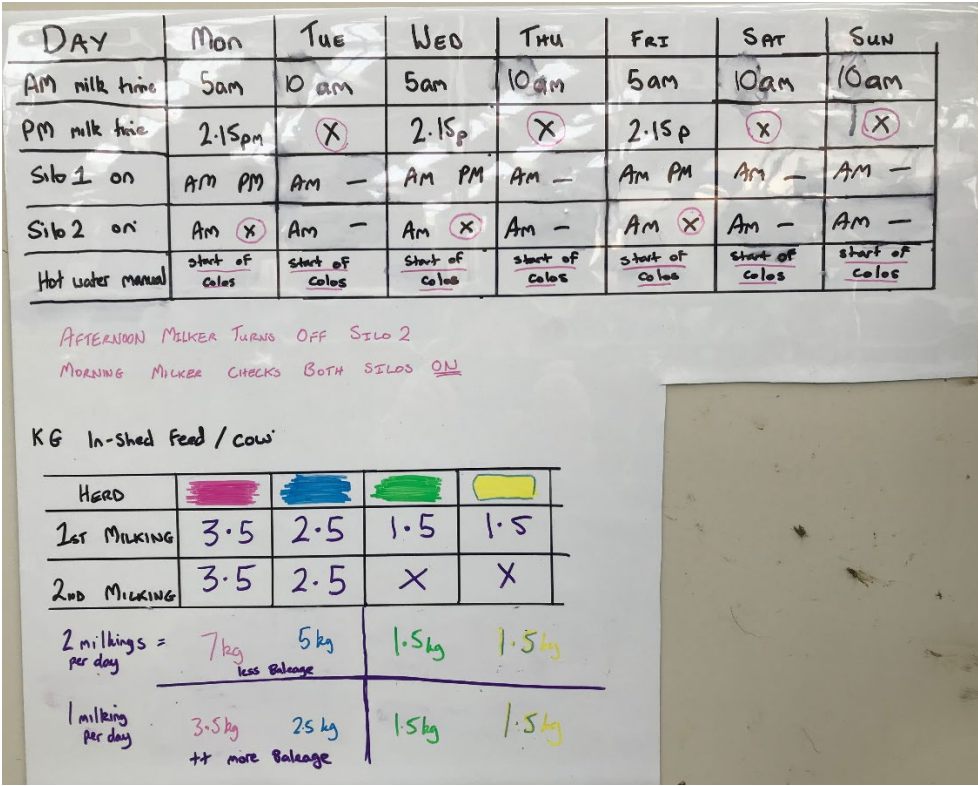 DAY Mon TUE WED THU FRI SAT SUN
AM milk time 5am 10 am 5am 10am 5am 10am 10am
PM milk time 2.15pm X 2.15p X 2.15p X X
Silo 1 on AM PM AM – AM PM AM – AM PM AM – AM –
Silo 2 on AM X AM – AM X AM – AM X AM – AM –
Hot water manual start of colos start of colos start of colos start of colos start of colos start of colos start of colos
AFTERNOON MILKER TURNS OFF SILO 2
MORNING MILKER CHECKS BOTH SILOS ON
KG In-shed Feed / cow
HERD
1ST MILKING 3.5 2.5 1.5 1.5
2ND MILKING 3.5 2.5 X X
2 milkings = 7kg 5kg 1.5kg 1.5kg
per day less Baleage
1 milking 3.5kg 2.5kg 1.5kg 1.5kg
per day
++ more Baleage